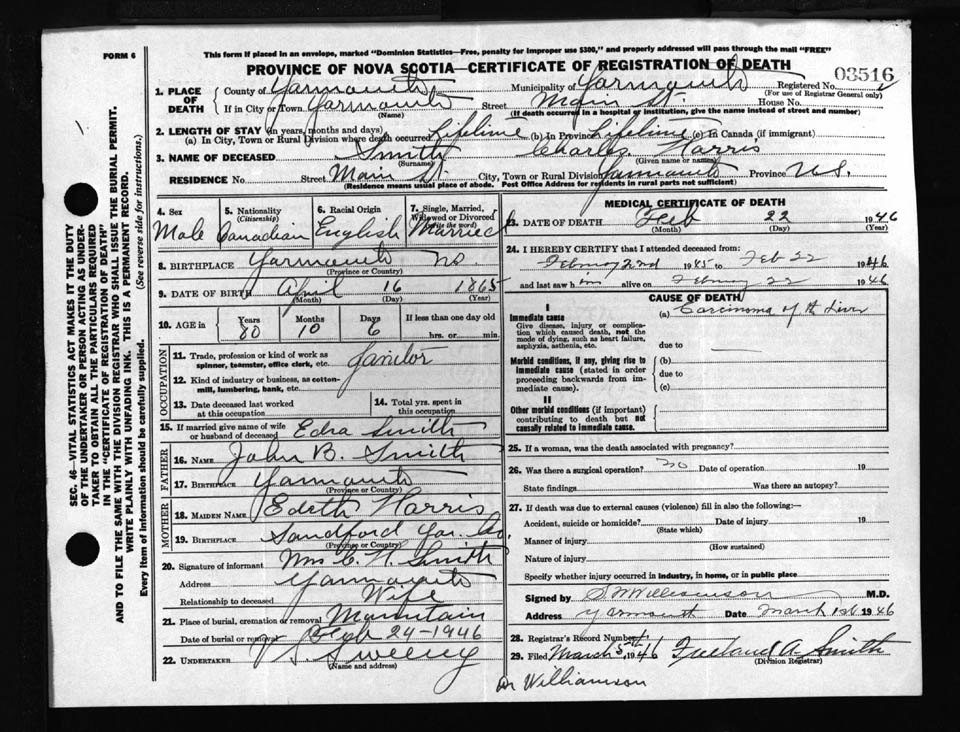 FORM 6
This form if placed in an envelope, marked "Dominion Statistics—Free, penalty for improper use $300," and properly addressed will pass through the mail "FREE"
PROVINCE OF NOVA SCOTIA—CERTIFICATE OF REGISTRATION OF DEATH
03516
1. PLACE OF DEATH
County of Yarmouth Municipality of Yarmouth Registered No.
(For use of Registrar General only)
If in City or Town Yarmouth Street Main St. House No.
(Name) (If death occurred in a hospital or institution, give the name instead of street and number)
2. LENGTH OF STAY (in years, months and days)
(a) In City, Town or Rural Division where death occurred Lifetime (b) In Province Lifetime (c) In Canada (if immigrant)
3. NAME OF DECEASED Smith Charles Harris
(Surname) (Given name or names)
RESIDENCE No. Street Main St. City, Town or Rural Division Yarmouth Province N.S.
(Residence means usual place of abode. Post Office Address for residents in rural parts not sufficient)
4. Sex Male
5. Nationality (Citizenship) Canadian
6. Racial Origin English
7. Single, Married, Widowed or Divorced (write the word) Married
8. BIRTHPLACE Yarmouth NS.
(Province or Country)
9. DATE OF BIRTH April 16 1865
(Month) (Day) (Year)
10. AGE in Years 80 Months 10 Days 6 If less than one day old
hrs. or min.
OCCUPATION
11. Trade, profession or kind of work as spinner, teamster, office clerk, etc. Janitor
12. Kind of industry or business, as cotton-mill, lumbering, bank, etc.
13. Date deceased last worked at this occupation
14. Total yrs. spent in this occupation
15. If married give name of wife or husband of deceased Edra Smith
FATHER
16. NAME John B. Smith
17. BIRTHPLACE Yarmouth
(Province or Country)
MOTHER
18. MAIDEN NAME Edith Harris
19. BIRTHPLACE Sandford Yar. Co.
(Province or Country)
20. Signature of informant Mrs C. H. Smith
Address Yarmouth
Relationship to deceased Wife
21. Place of burial, cremation or removal Mountain
Date of burial or removal Feb 24-1946
22. UNDERTAKER V S. Sweeny
(Name and address)
MEDICAL CERTIFICATE OF DEATH
23. DATE OF DEATH Feb 22 1946
(Month) (Day) (Year)
24. I HEREBY CERTIFY that I attended deceased from
February 22nd 1945 to Feb 22 1946
and last saw him alive on February 22 1946
CAUSE OF DEATH
I
Immediate cause (a) Carcinoma of the Liver
Give disease, injury or complication which caused death, not the mode of dying, such as heart failure, asphyxia, asthenia, etc.
due to
Morbid conditions, if any, giving rise to immediate cause (stated in order proceeding backwards from immediate cause).
(b)
due to
(c)
II
Other morbid conditions (if important) contributing to death but not causally related to immediate cause.
25. If a woman, was the death associated with pregnancy?
26. Was there a surgical operation? no Date of operation 19
State findings Was there an autopsy?
27. If death was due to external causes (violence) fill in also the following:—
Accident, suicide or homicide? Date of injury 19
(State which)
Manner of injury
(How sustained)
Nature of injury
Specify whether injury occurred in industry, in home, or in public place
Signed by S.W. Williamson M.D.
Address Yarmouth Date March 1st 1946
28. Registrar's Record Number
29. Filed March 5th 1946 Freeland A. Smith
(Division Registrar)
Dr Williamson
SEC. 46—VITAL STATISTICS ACT MAKES IT THE DUTY
OF THE UNDERTAKER OR PERSON ACTING AS UNDER-
TAKER TO OBTAIN ALL THE PARTICULARS REQUIRED
IN THE "CERTIFICATE OF REGISTRATION OF DEATH"
AND TO FILE THE SAME WITH THE DIVISION REGISTRAR WHO SHALL ISSUE THE BURIAL PERMIT.
WRITE PLAINLY WITH UNFADING INK. THIS IS A PERMANENT RECORD.
Every item of information should be carefully supplied. (See reverse side for instructions.)